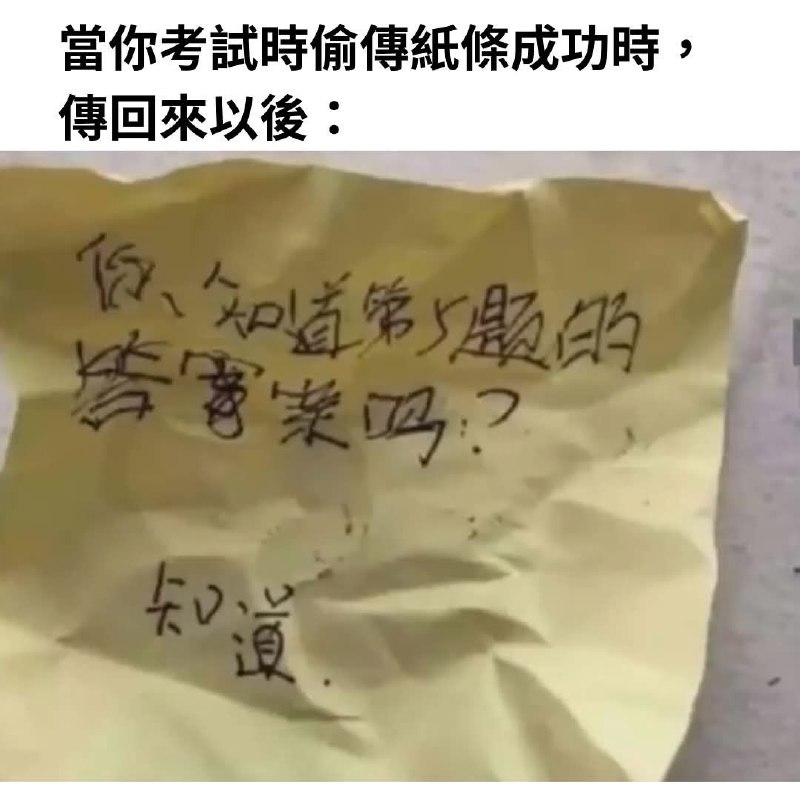 當你考試時偷傳紙條成功時，
傳回來以後：
你知道第5題的
答案吗?
知道.